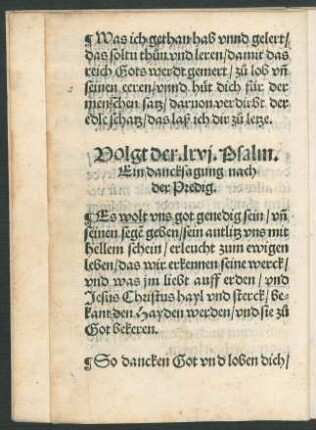 ¶Was ich gethan hab vnnd gelert/
das soltu thůn vnd leren/damit das
reich Gots werdt gemert/ zů lob vñ
seinen eeren/vnnd hüt dich für der
menschen satz/ daruon verdirbt der
edle schatz/das laß ich dir zů letze.
Volgt der.lxvj.Psalm.
Ein dancksagung nach
der Predig.
¶Es wolt vns got genedig sein/ vñ
seinen segē geben/sein antlitz vns mit
hellem schein/ erleucht zum ewigen
leben/das wir erkennen seine werck/
vnd was jm liebt auff erden/ vnd
Jesus Christus hayl vnd sterck/ be-
kant den Hayden werden/vnd sie zů
Got bekeren.
¶So dancken Got vnd loben dich/